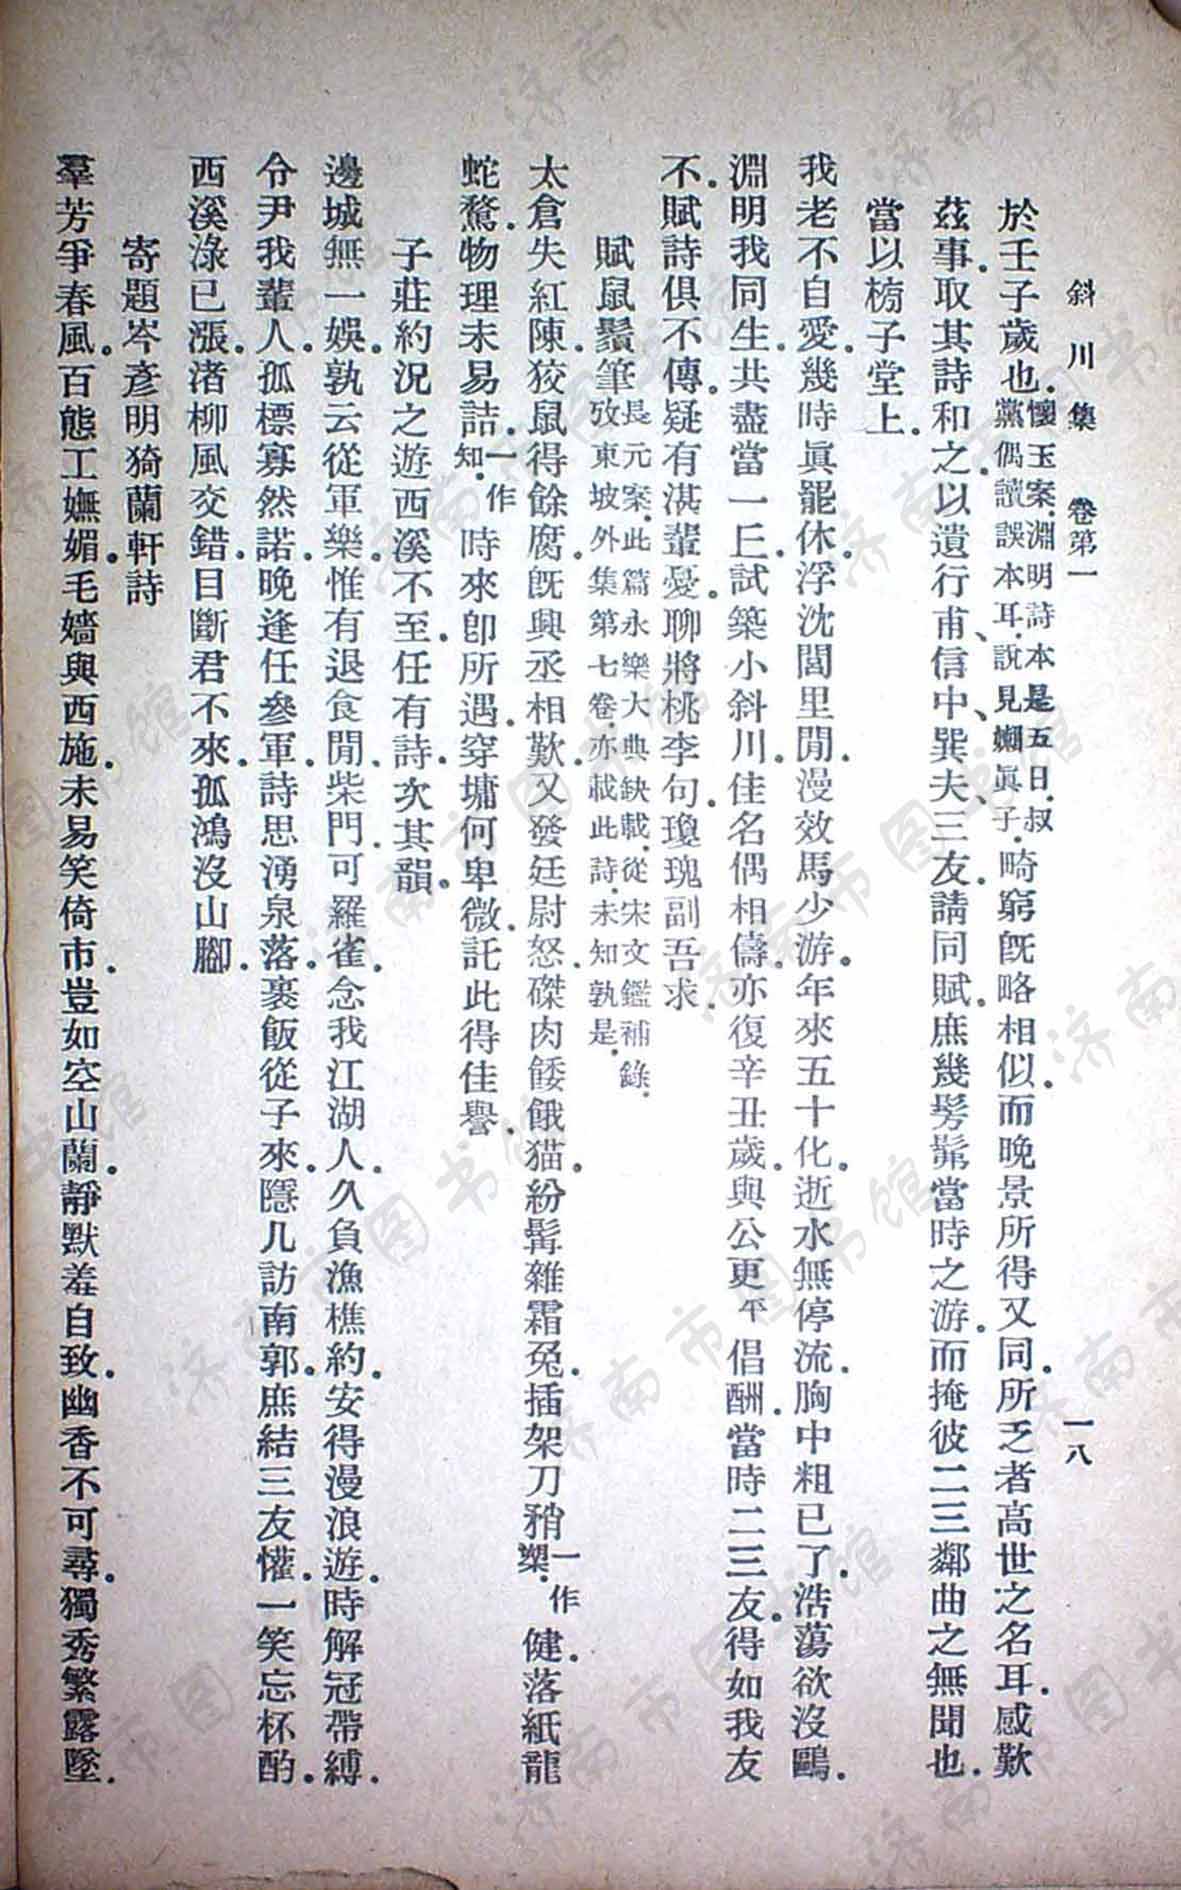 斜川集　卷第一　一八
於壬子歲也．懷玉案．淵明詩本是五日．叔黨偶讀誤本耳．說見嬾眞子．畸窮旣略相似．而晚景所得又同．所乏者高世之名耳．感歎
茲事．取其詩和之．以遺行甫、信中、巽夫、三友．請同賦．庶幾髣髴當時之游．而掩彼二三鄰曲之無聞也．
當以榜子堂上．
我老不自愛．幾時眞罷休．浮沈閭里閒．漫效馬少游．年來五十化．逝水無停流．胸中粗已了．浩蕩欲沒鷗．
淵明我同生．共盡當一丘．試築小斜川．佳名偶相儔．亦復辛丑歲．與公更平倡酬．當時二三友．得如我友
不．賦詩俱不傳．疑有湛輩憂．聊將桃李句．瓊瑰副吾求．
賦鼠鬚筆　長元案．此篇永樂大典缺載．從宋文鑑補錄．攷東坡外集第七卷．亦載此詩．未知孰是．
太倉失紅陳．狡鼠得餘腐．旣興丞相歎．又發廷尉怒．磔肉餧餓猫．紛髯雜霜兔．插架刀矟一作槊．健．落紙龍
蛇鶩．物理未易詰．一作知．時來卽所遇．穿墉何卑微．託此得佳譽．
子莊約況之遊西溪不至．任有詩．次其韻．
邊城無一娛．孰云從軍樂．惟有退食閒．柴門可羅雀．念我江湖人．久負漁樵約．安得漫浪遊．時解冠帶縛．
令尹我輩人．孤標寡然諾．晚逢任參軍．詩思湧泉落．裹飯從子來．隱几訪南郭．庶結三友懽．一笑忘杯酌．
西溪淥已漲．渚柳風交錯．目斷君不來．孤鴻沒山腳．
寄題岑彥明猗蘭軒詩
羣芳爭春風．百態工嫵媚．毛嬙與西施．未易笑倚市．豈如空山蘭．靜默羞自致．幽香不可尋．獨秀繁露墜．
济南市图书馆